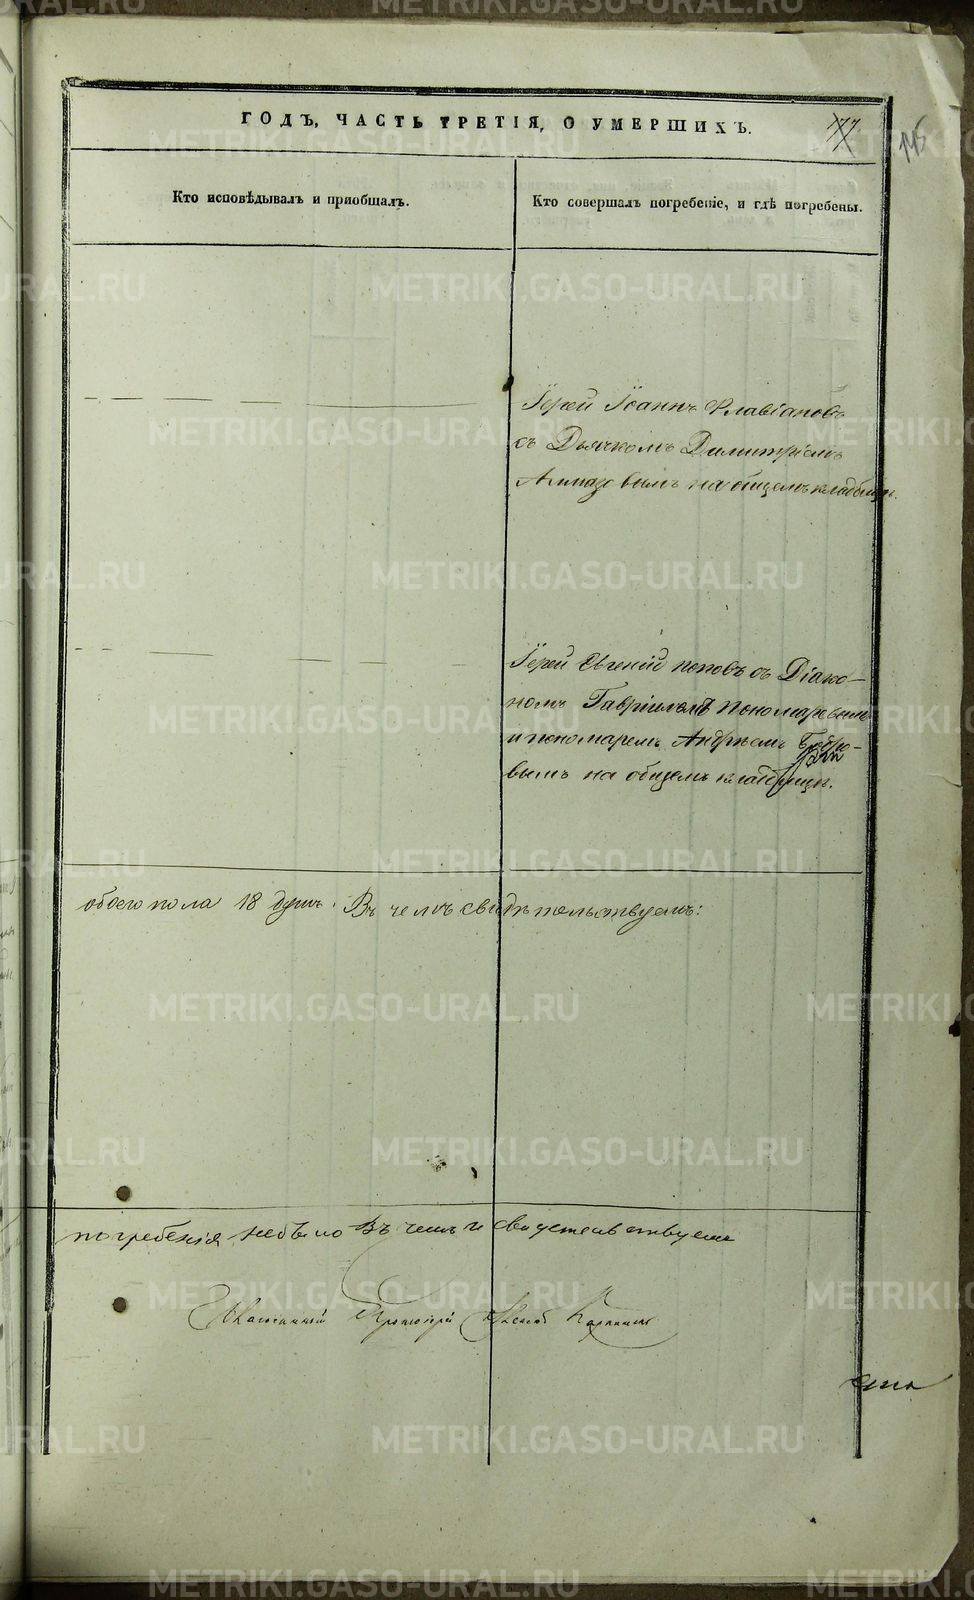 ГОДЪ, ЧАСТЬ ТРЕТІЯ, О УМЕРШИХЪ.
177 145
Кто исповѣдывалъ и пріобщалъ.
Кто совершалъ погребеніе, и гдѣ погребены.
Іерей Іоаннъ Флавіановъ
съ Дьячкомъ Димитріемъ
Алмазовымъ на общемъ кладбищѣ.
Іерей Евгеній Поповъ съ Діако-
номъ Гавріиломъ Пономаревымъ
и пономаремъ Андреемъ Бобро-
вымъ на общемъ кладбищѣ.
обоего пола 18 душъ. Въ чемъ свидѣтельствуемъ:
погребенія небыло Въ чемъ и свидетельствуемъ
Протоіерей
METRIKI.GASO-URAL.RU